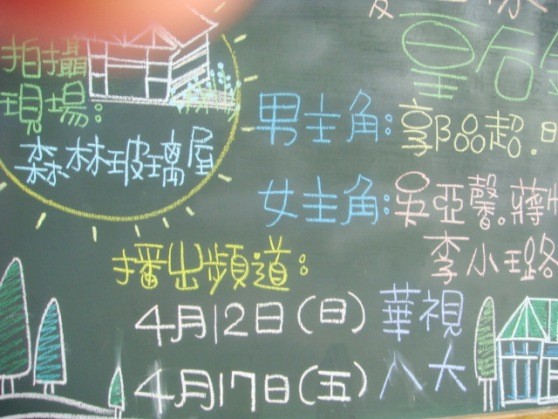 拍攝
現場:
森林玻璃屋
男主角:郭品超.
女主角:吳亞馨.蔣
李小璐
播出頻道:
4月12日(日)華視
4月17日(五)八大